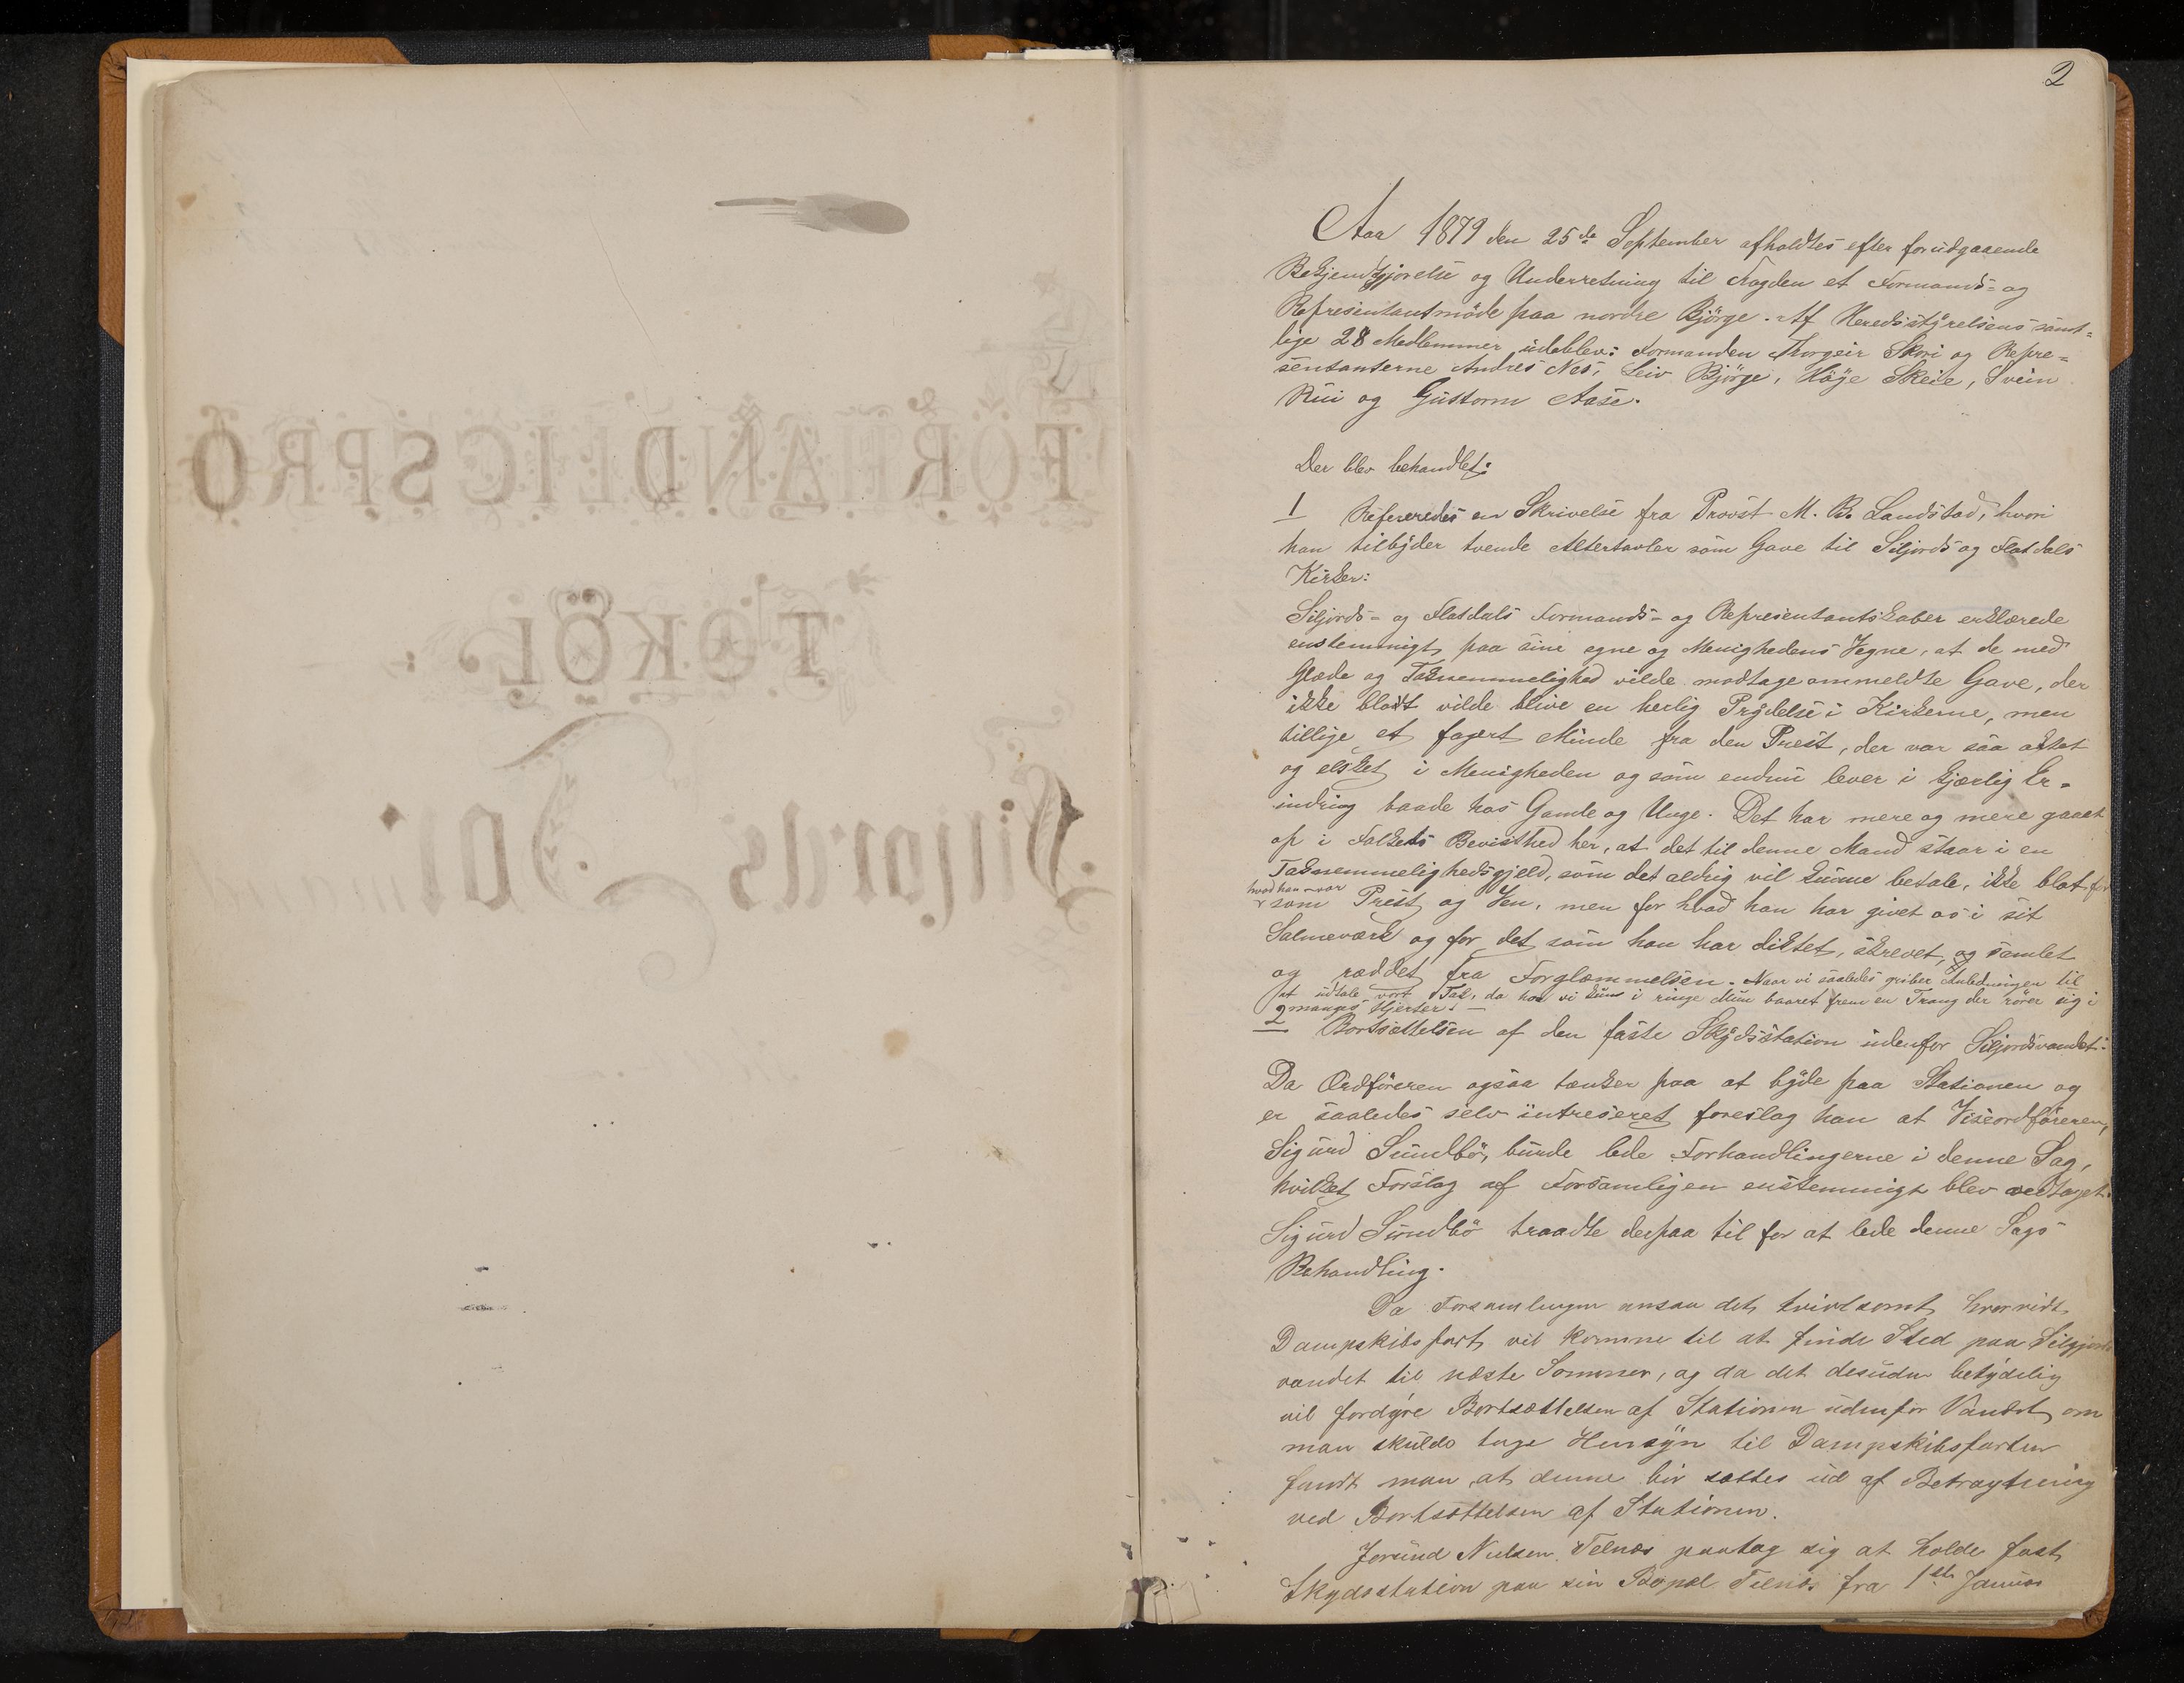 2
Aar 1879 den 25de September afholdtes efter forudgaaende
Bekjendtgjørelse og Underretning til Fogden et Formands- og
Representantmöde paa nordre Björge. Af Heredsstyrelsens samt-
lige 28 Medlemmer udeblev: Formanden Thorgeir Skori og Repre-
sentanterne Andres Nes, Leiv Björge, Höje Skeie, Svein
Rui og Guttorm Aase.
Der blev behandlet:
1 Refereredes en Skrivelse fra Provst M. B. Landstad, hvori
han tilbyder tvende Altertavler som Gave til Siljords og Flatdals
Kirker:
Siljords- og Flatdals Formands- og Representantskaber erklærede
enstemmigt paa sine egne og Menighedens Vegne, at de med
Glæde og Taknemmelighed vilde modtage ommeldte Gave, der
ikke blott vilde blive en herlig Prydelse i Kirkerne, men
tillige et fagert Minde fra den Prest, der var saa aktet
og elsket i Menigheden og som endnu lever i kjærlig Er-
indring baade hos Gamle og Unge. Det har mere og mere gaaet
op i Folkets Bevisthed her, at det til denne Mand staar i en
Taknemmelighedsgjeld, som det aldrig vil kunne betale, ikke blot for
hvad han var
som Prest og Ven, men for hvad han har givet os i sit
Salmeværk og for det som han har diktet, skrevet, og samlet
og reddet fra Forglæmmelsen. Naar vi saaledes griber Anledningen til
at udtale vort Tak, da har vi kuns i ringe Mun baaret frem en Trang der rører sig i
manges Hjerter. —
2 Bortsættelsen af den faste Skydsstation udenfor Siljordsvandet:
Da Ordføreren ogsaa tænker paa at byde paa Stationen og
er saaledes selv intreseret foreslog han at Viseordføreren,
Sigurd Sundbö, burde lede Forhandlingerne i denne Sag,
hvilket Forslag af Forsamligen enstemmigt blev vedtaget.
Sigurd Sundbö traadte derpaa til for at lede denne Sags
Behandling.
Da Forsamlingen ansaa det tvivlsomt hvorvidt
Dampskibsfart vil komme til at finde Sted paa Silgjords
vandet til næste Sommer, og da det desuden betydelig
vil fordyre Bortsættelsen af Stationen udenfor Vandet om
man skulde tage Hensyn til Dampskibsfarten
fandt man at denne bör sættes ud af Betragtning
ved Bortsættelsen af Stationen.
Jorund Nielsen Telnes paatog sig at holde fast
Skydsstation paa sin Bopæl Telnes fra 1ste Januar
FORHANDLIGSPRO
TOKOL
for
Siljords